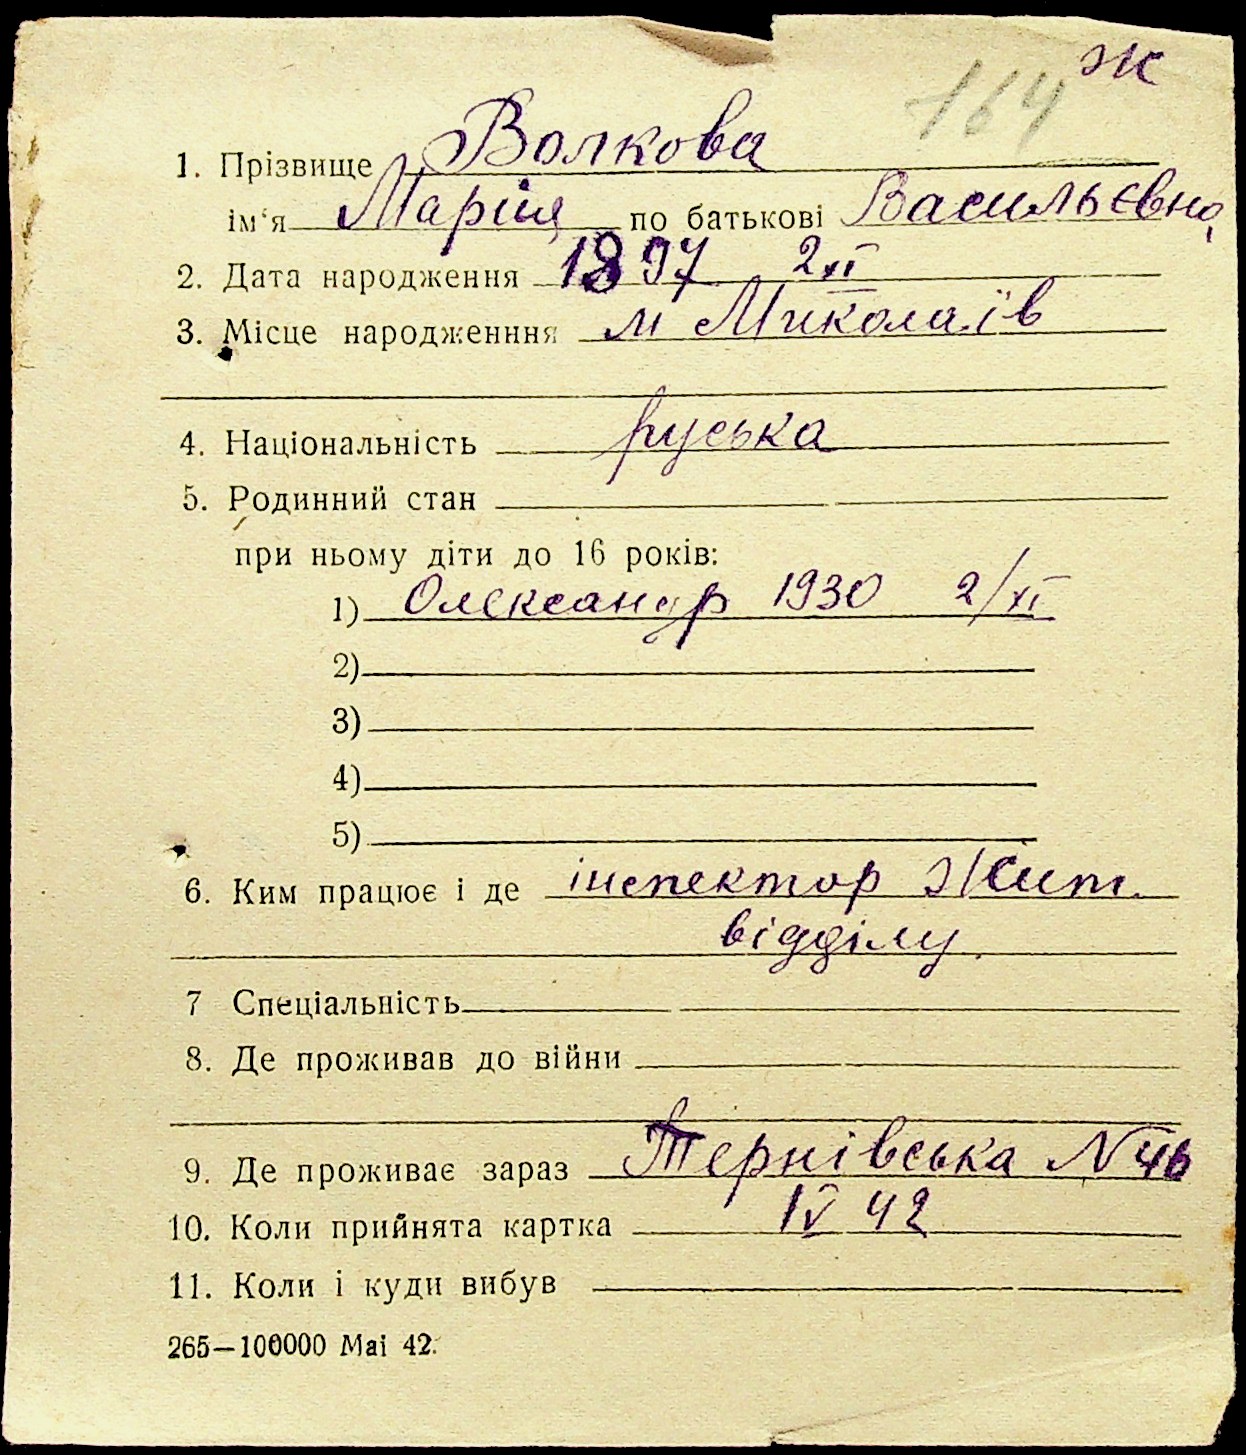 ж
164
1. Прізвище Волкова
ім'я Марія по батькові Васильєвна
2. Дата народження 1897 2 XI
3. Місце народженння м Миколаїв
4. Національність руська
5. Родинний стан
при ньому діти до 16 років:
1) Олександр 1930 2/XI
2)
3)
4)
5)
6. Ким працює і де інспектор Жит.
відділу.
7 Спеціальність
8. Де проживав до війни
9. Де проживає зараз Тернівська N 46
10. Коли прийнята картка IV 42
11. Коли і куди вибув
265—100000 Mai 42.